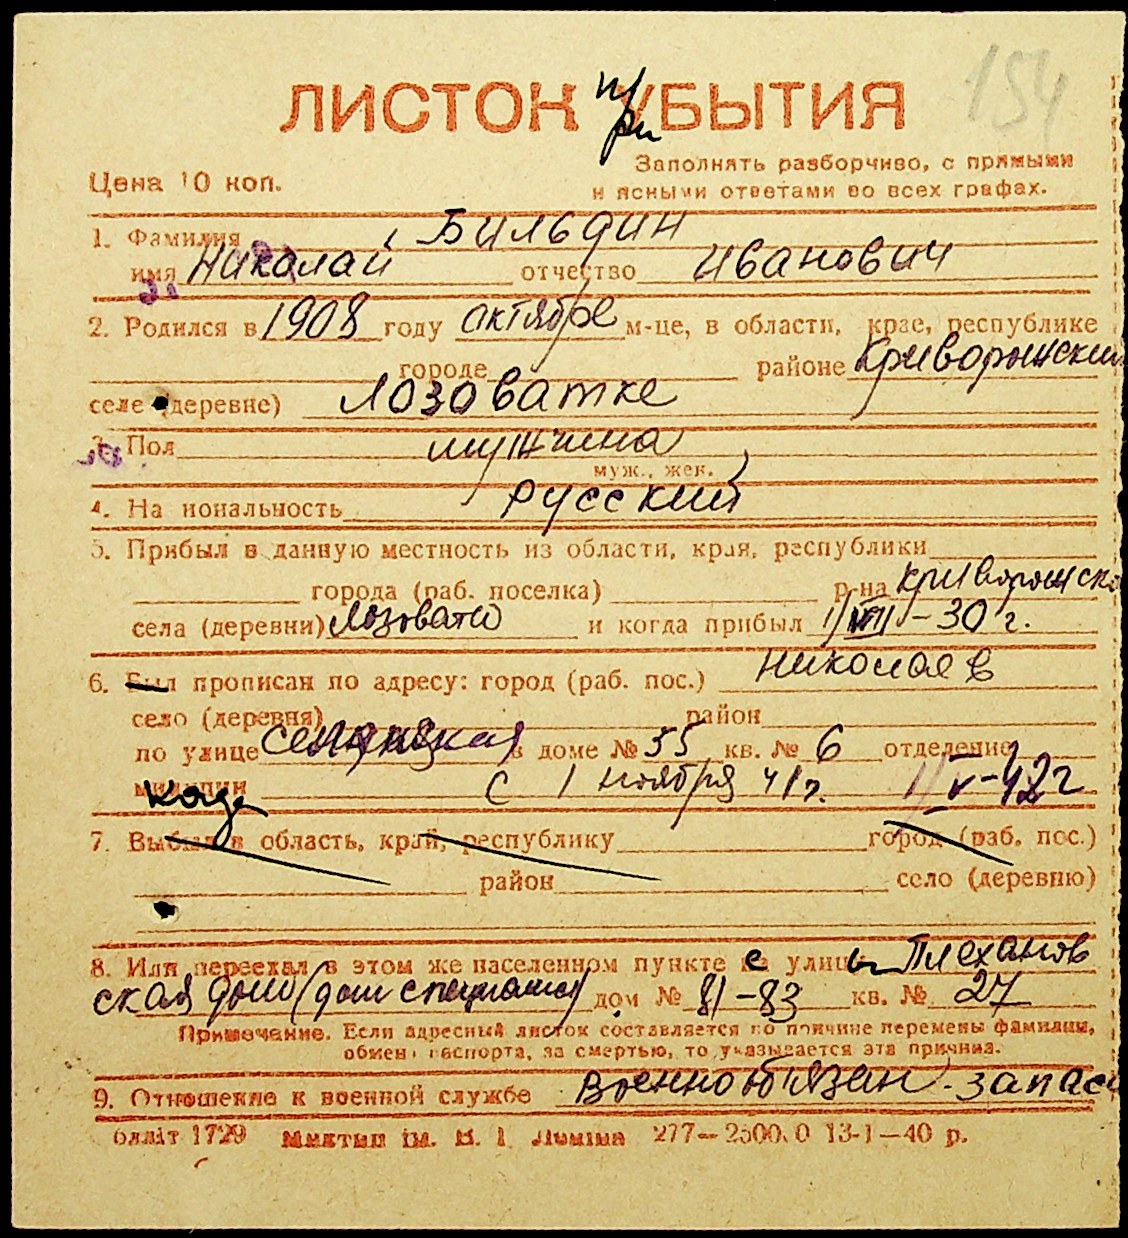 154
ЛИСТОК при УБЫТИЯ
Цена 10 коп.
Заполнять разборчиво, с прямыми
и ясными ответами во всех графах.
1. Фамилия Бильдин
имя Николай отчество Иванович
2. Родился в 1908 году октябре м-це, в области, крае, республике
городе районе Криворожский
селе (деревне) Лозоватке
3. Пол мужчина
муж., жен.
4. На иональность Русский
5. Прибыл в данную местность из области, края, республики
города (раб. поселка) р-на Криворожско
села (деревни) Лозоватка и когда прибыл 1/VIII-30 г.
6. Был прописан по адресу: город (раб. пос.) Николаев
село (деревня) район
по улице в доме № 55 кв. № 6 отделение
милиции с 1 ноября 41 г. 1/V-42 г
7. Выбыл в область, край, республику город (раб. пос.)
район село (деревню)
8. Или переехал в этом же населенном пункте с улицы Плеханов
ская дом (дом специалист) дом № 81-83 кв. № 27
Примечание. Если адресный листок составляется по причине перемены фамилии,
обмен паспорта, за смертью, то указывается эта причина.
9. Отношение к военной службе Военнообязан. запас
блліт 1729 277—2500.0 13-1—40 р.